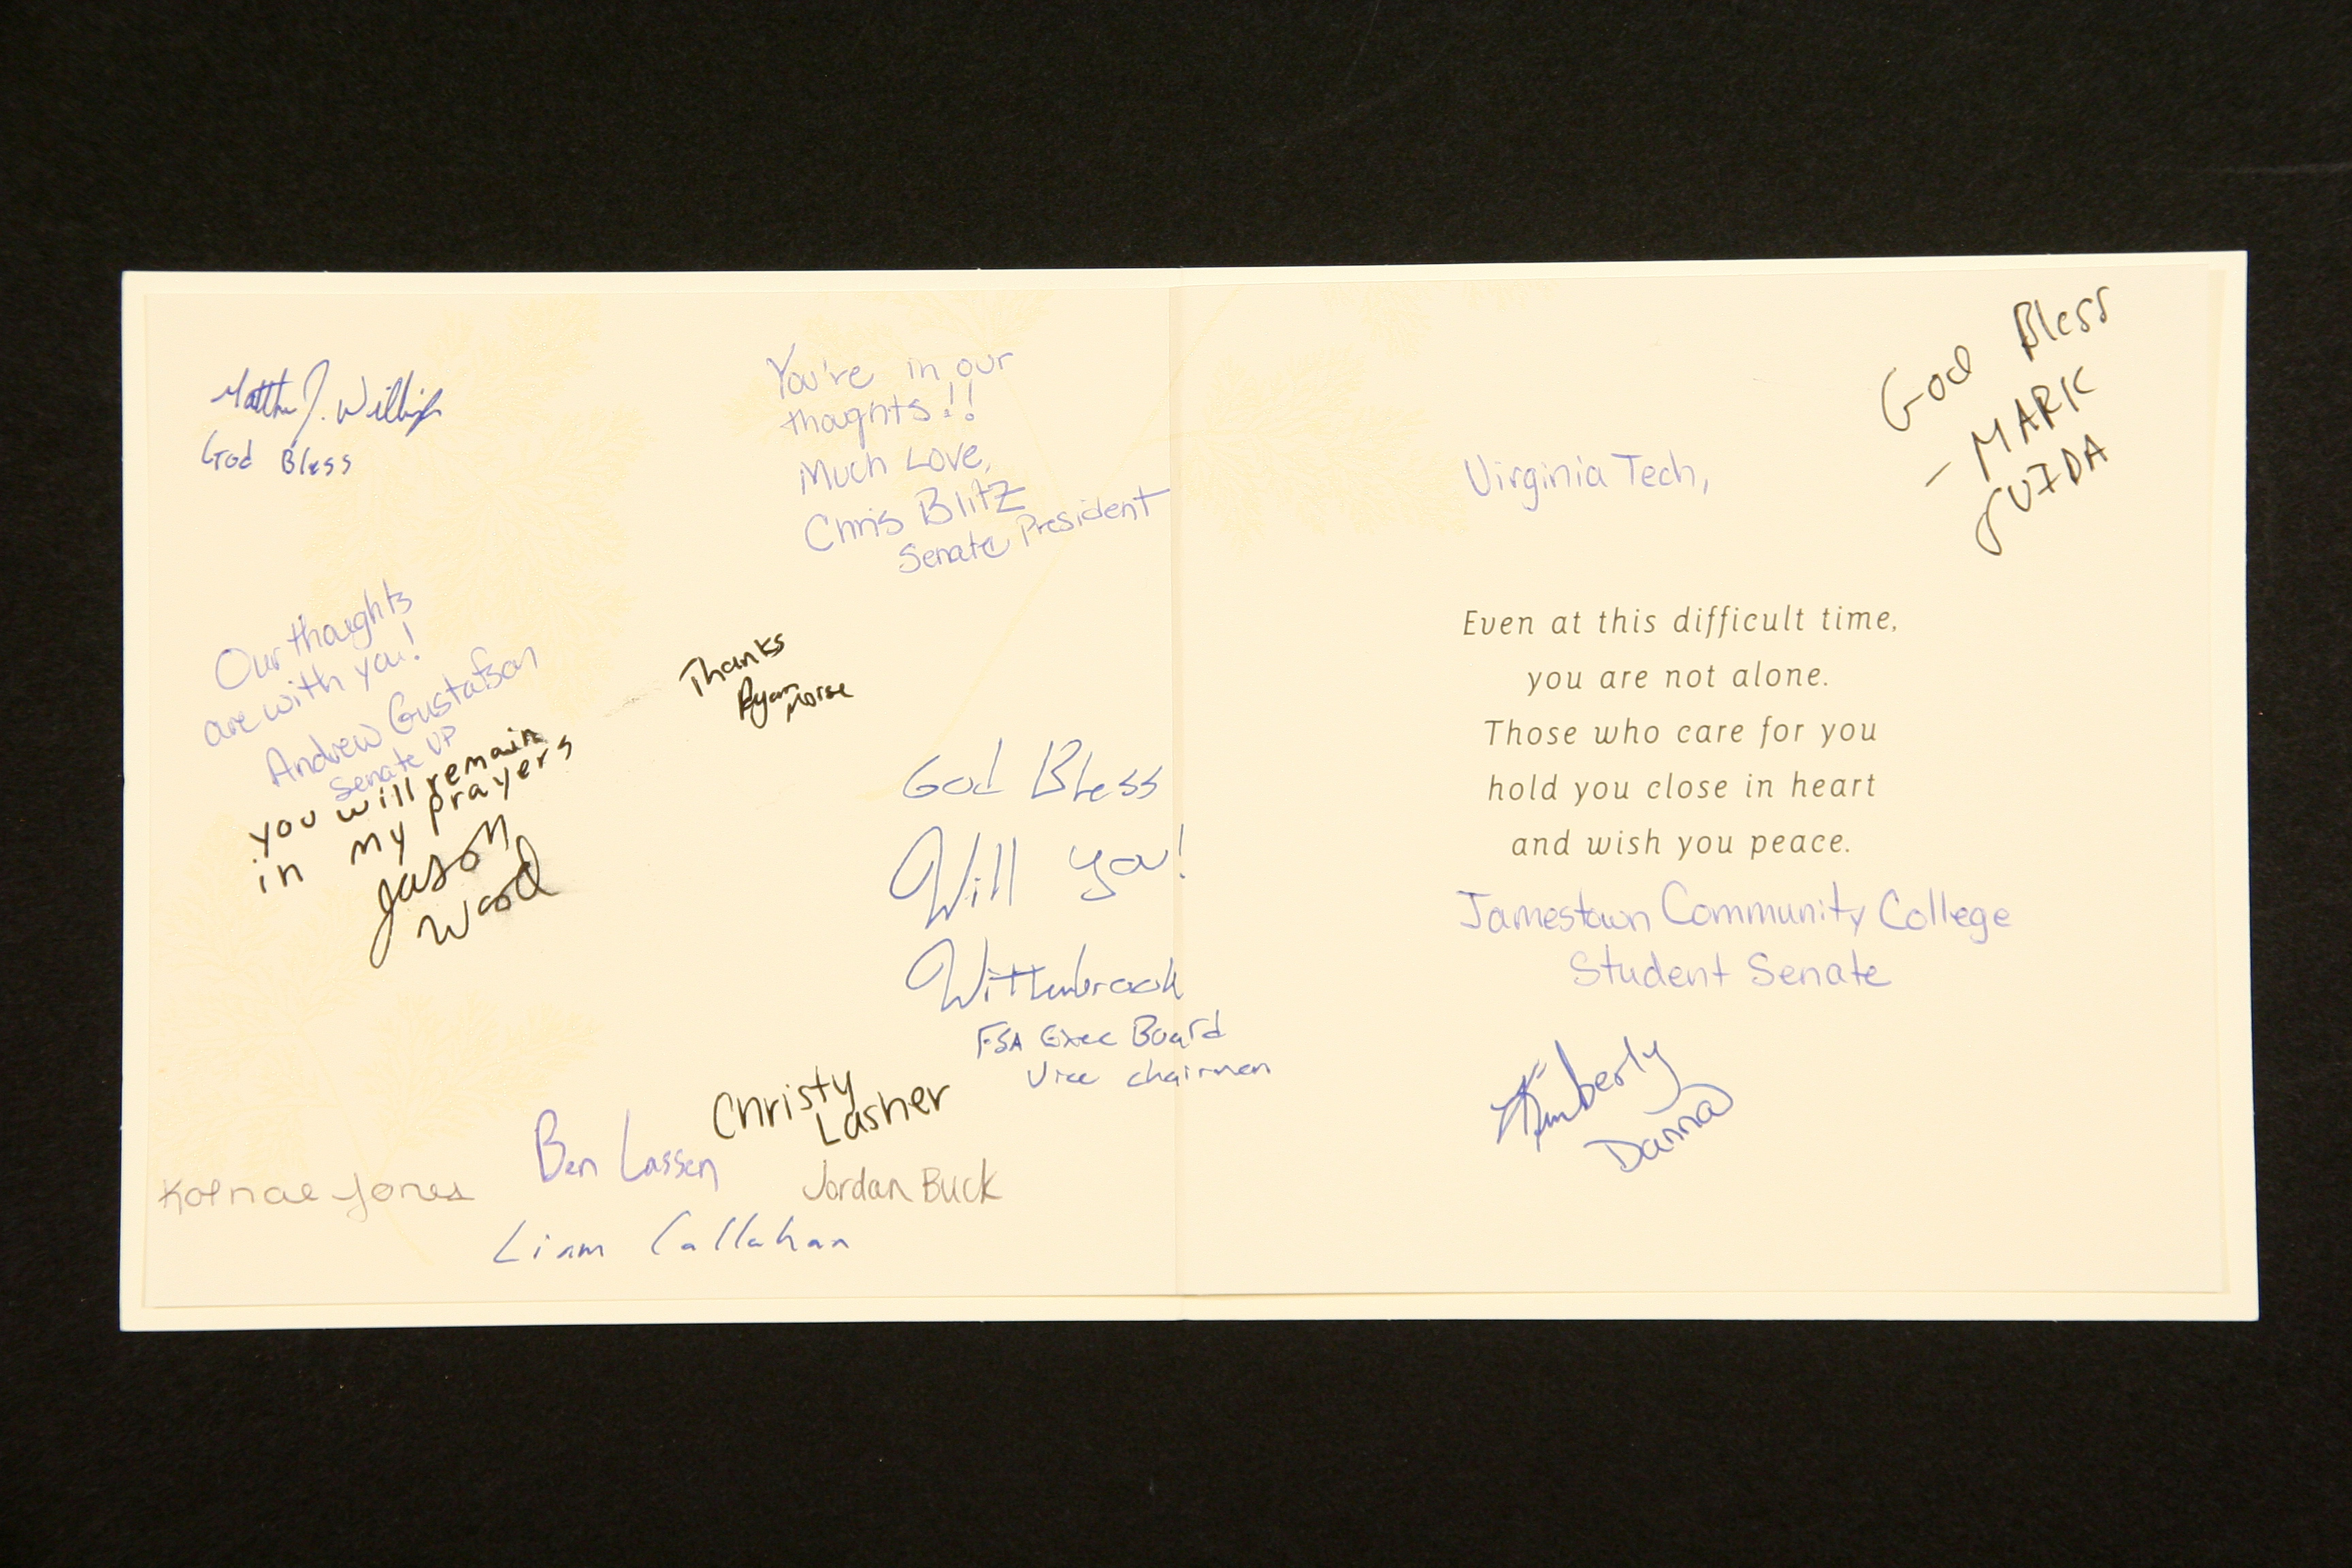 Matthew J.
God Bless
You're in our
thoughts!!
Much Love,
Chris Blitz
Senate President
Our thoughts
are with you!
Andrew Gustafson
Senate VP
you will remain
in my prayers
Jason
Wood
Thanks
Ryan
Morse
God Bless
Will you!
Wittenbrook
FSA Exec Board
Vice Chairmen
Christy
Lasher
Ben Lassen
Jordan Buck
Jones
Liam Callahan
God Bless
- MARK
GUIDA
Virginia Tech,
Even at this difficult time,
you are not alone.
Those who care for you
hold you close in heart
and wish you peace.
Jamestown Community College
Student Senate
Kimberly
Danna